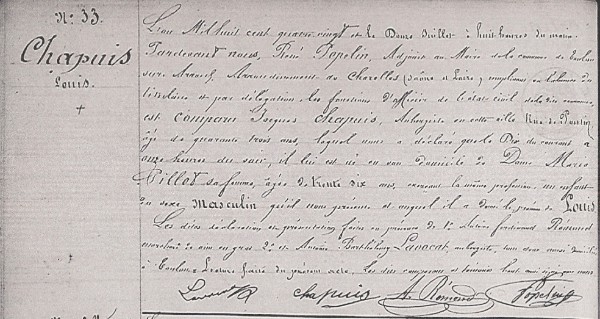 N° 33.
Chapuis
Louis.
L'an Mil huit cent quatre vingt et le Douze Juillet à huit heures du matin
Pardevant nous, René Popelin, Adjoint au Maire de la commune de Toulon
sur Arroux, Arrondissement de Charolles (Saône et Loire) remplissant en l'absence du
titulaire et par délégation les fonctions d'officier de l'état civil de la dite commune,
est comparu Jacques Chapuis, Aubergiste en cette ville Rue de
âgé de quarante trois ans, lequel nous a déclaré que le Dix du courant à
onze heures du soir, il lui est né en son domicile de Dame Marie
Pillot sa femme, âgée de trente six ans, exerçant la même profession, un enfant
du sexe Masculin qu'il nous présente et auquel il a donné le prénom de Louis
Les dites déclaration et présentation faites en présence de 1° Antoine Ferdinand Rémond
marchand de vin en gros 2° et Antoine Barthélemy Lavocat aubergiste, tous deux domiciliés
à Toulon. Lecture faite du présent acte, Les dits comparant et témoins l'ont signé avec nous
Lavocat Chapuis A. Rémond Popelin